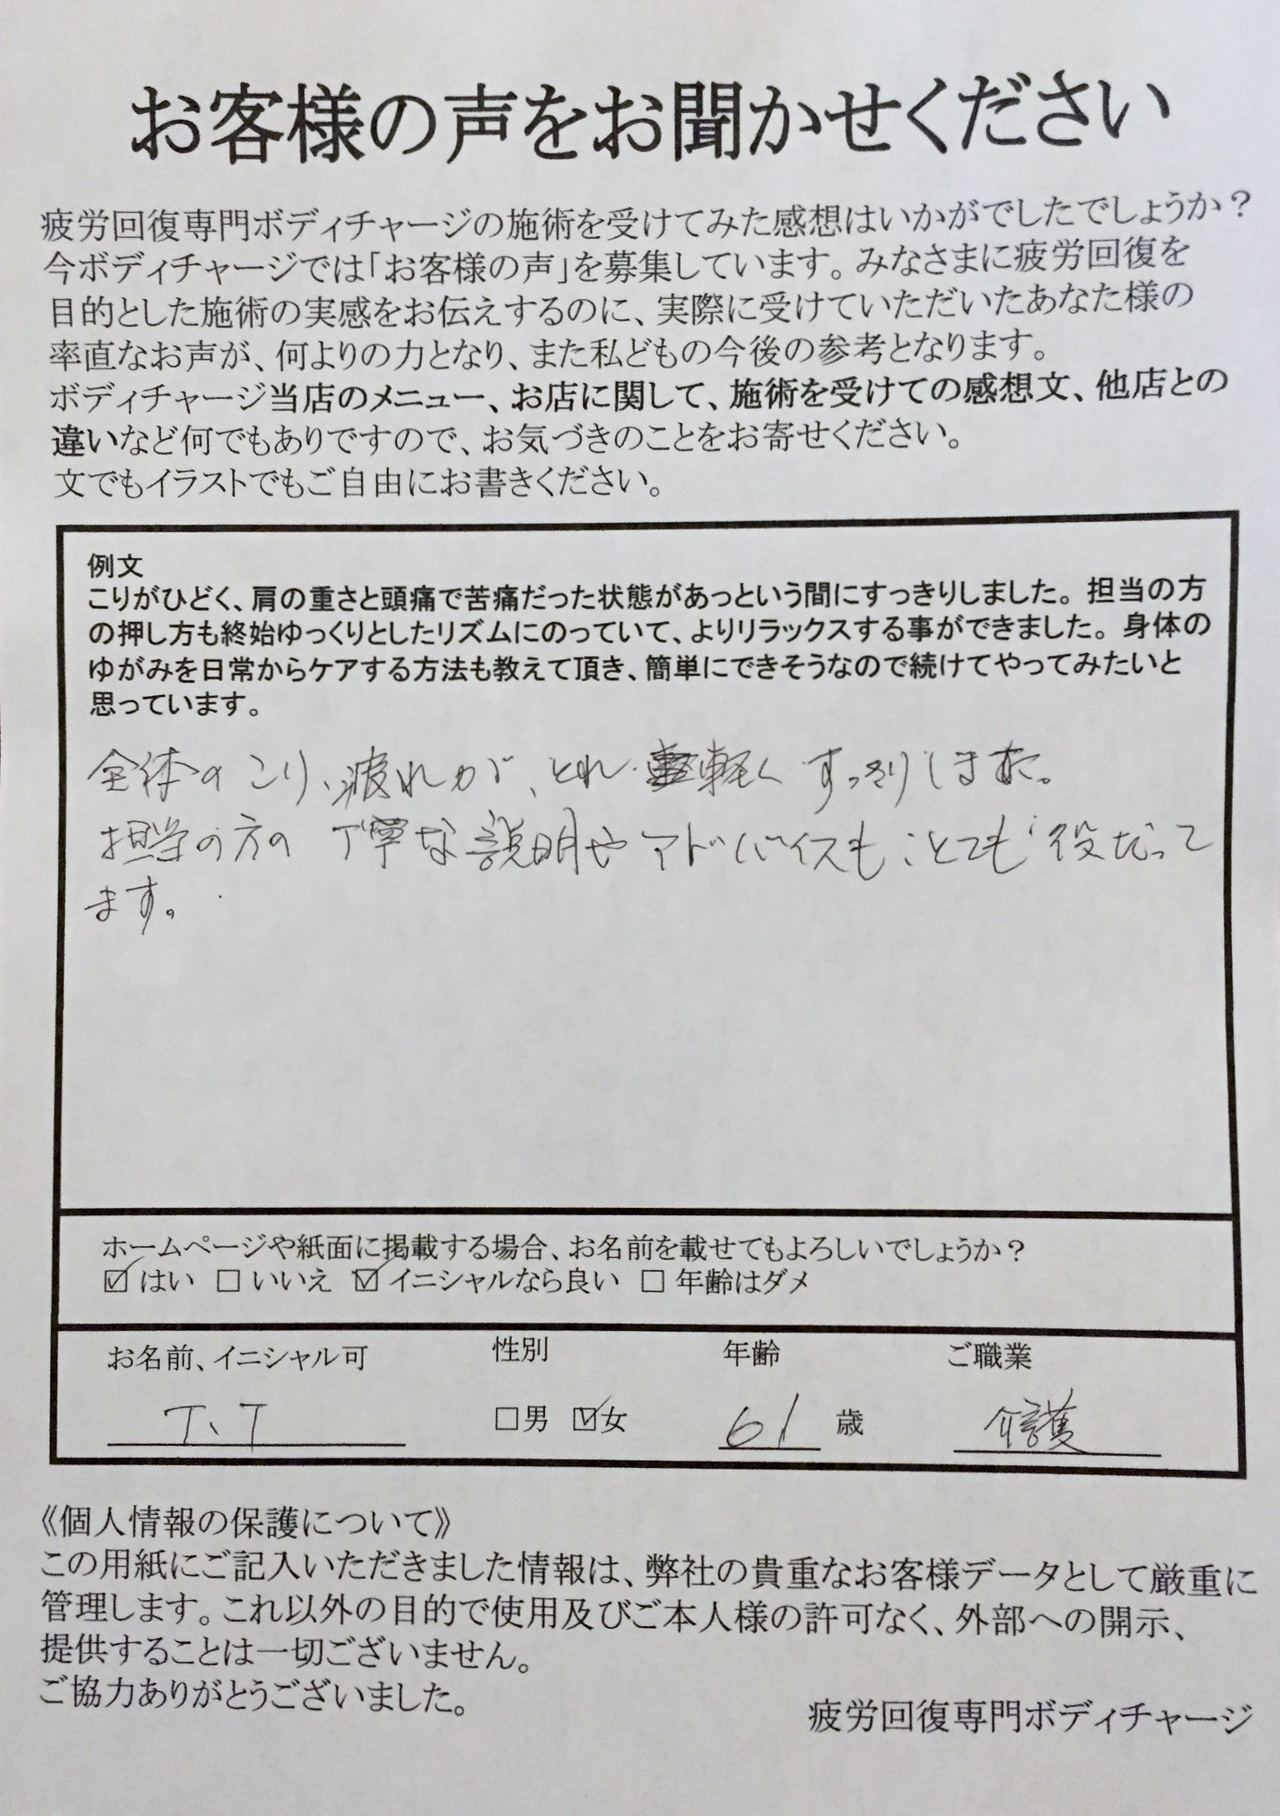 お客様の声をお聞かせください
疲労回復専門ボディチャージの施術を受けてみた感想はいかがでしたでしょうか？
今ボディチャージでは「お客様の声」を募集しています。みなさまに疲労回復を
目的とした施術の実感をお伝えするのに、実際に受けていただいたあなた様の
率直なお声が、何よりの力となり、また私どもの今後の参考となります。
ボディチャージ当店のメニュー、お店に関して、施術を受けての感想文、他店との
違いなど何でもありですので、お気づきのことをお寄せください。
文でもイラストでもご自由にお書きください。
例文
こりがひどく、肩の重さと頭痛で苦痛だった状態があっという間にすっきりしました。担当の方
の押し方も終始ゆっくりとしたリズムにのっていて、よりリラックスする事ができました。身体の
ゆがみを日常からケアする方法も教えて頂き、簡単にできそうなので続けてやってみたいと
思っています。
全体のこり、疲れが、とれ、軽くすっきりしました。
担当の方の丁寧な説明やアドバイスも、とても役だって
ます。
ホームページや紙面に掲載する場合、お名前を載せてもよろしいでしょうか？
☑はい □いいえ ☑イニシャルなら良い □年齢はダメ
お名前、イニシャル可 性別 年齢 ご職業
T、T □男 ☑女 61歳 介護
《個人情報の保護について》
この用紙にご記入いただきました情報は、弊社の貴重なお客様データとして厳重に
管理します。これ以外の目的で使用及びご本人様の許可なく、外部への開示、
提供することは一切ございません。
ご協力ありがとうございました。
疲労回復専門ボディチャージ